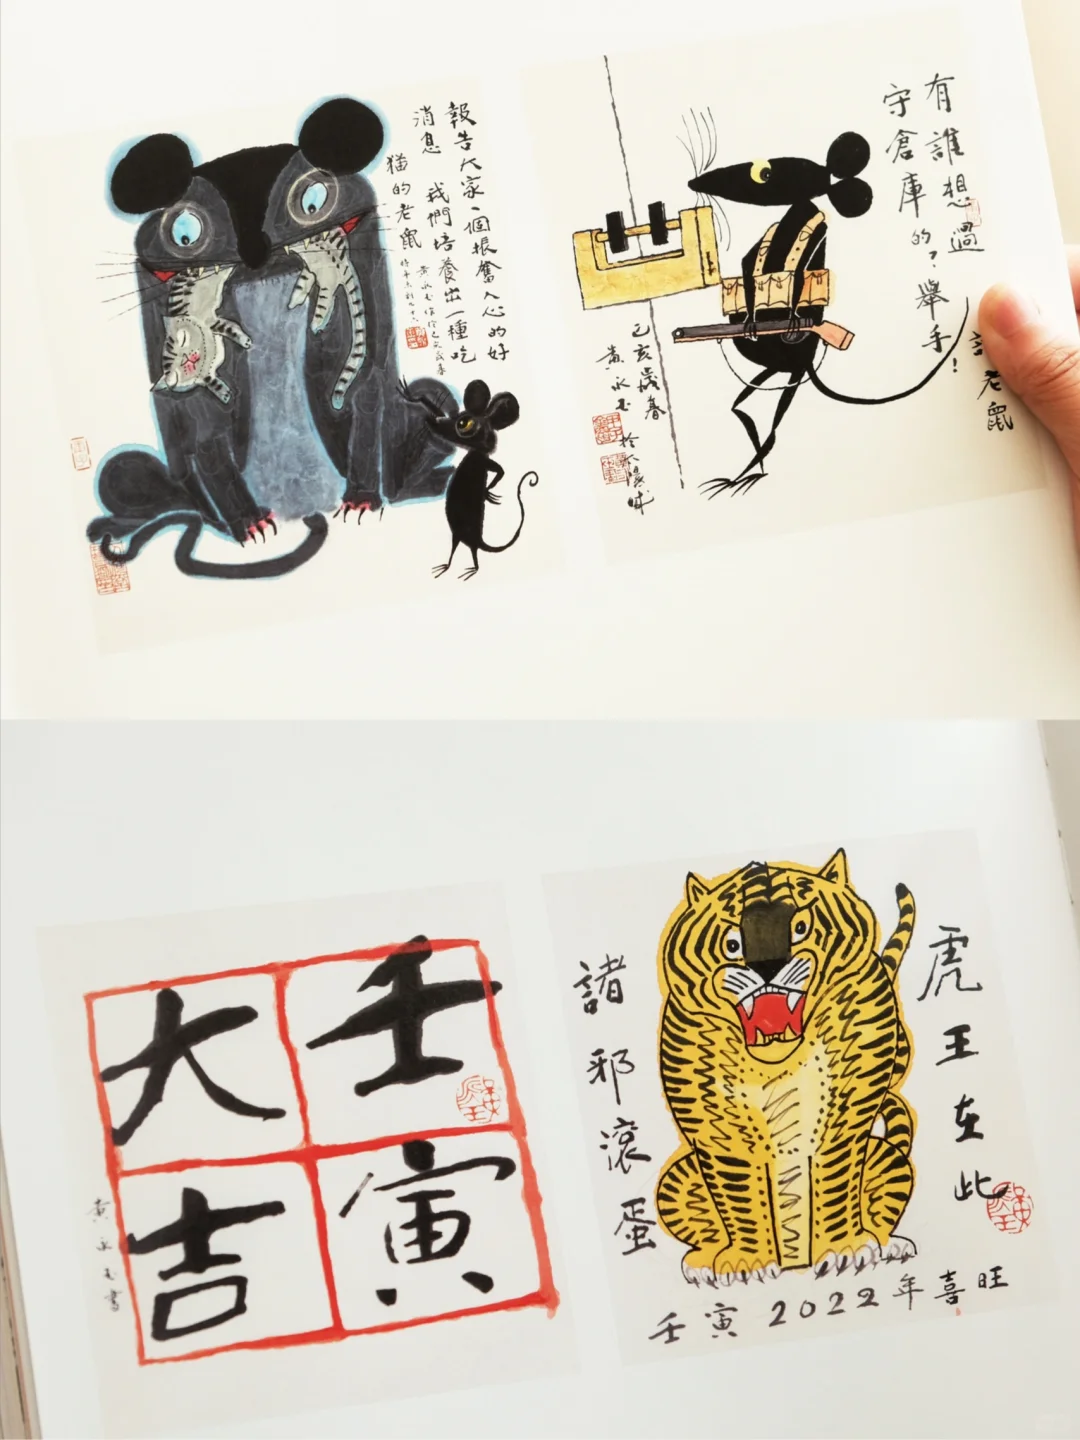 報告大家一個振奮人心的好
消息 我們培養出一種吃
猫的老鼠
有誰想過
守倉庫的？舉手！
老鼠
己亥歲春
黄永玉
於太陽城
壬寅
大吉
黄永玉書
虎王在此
諸邪滚蛋
壬寅2022年喜旺